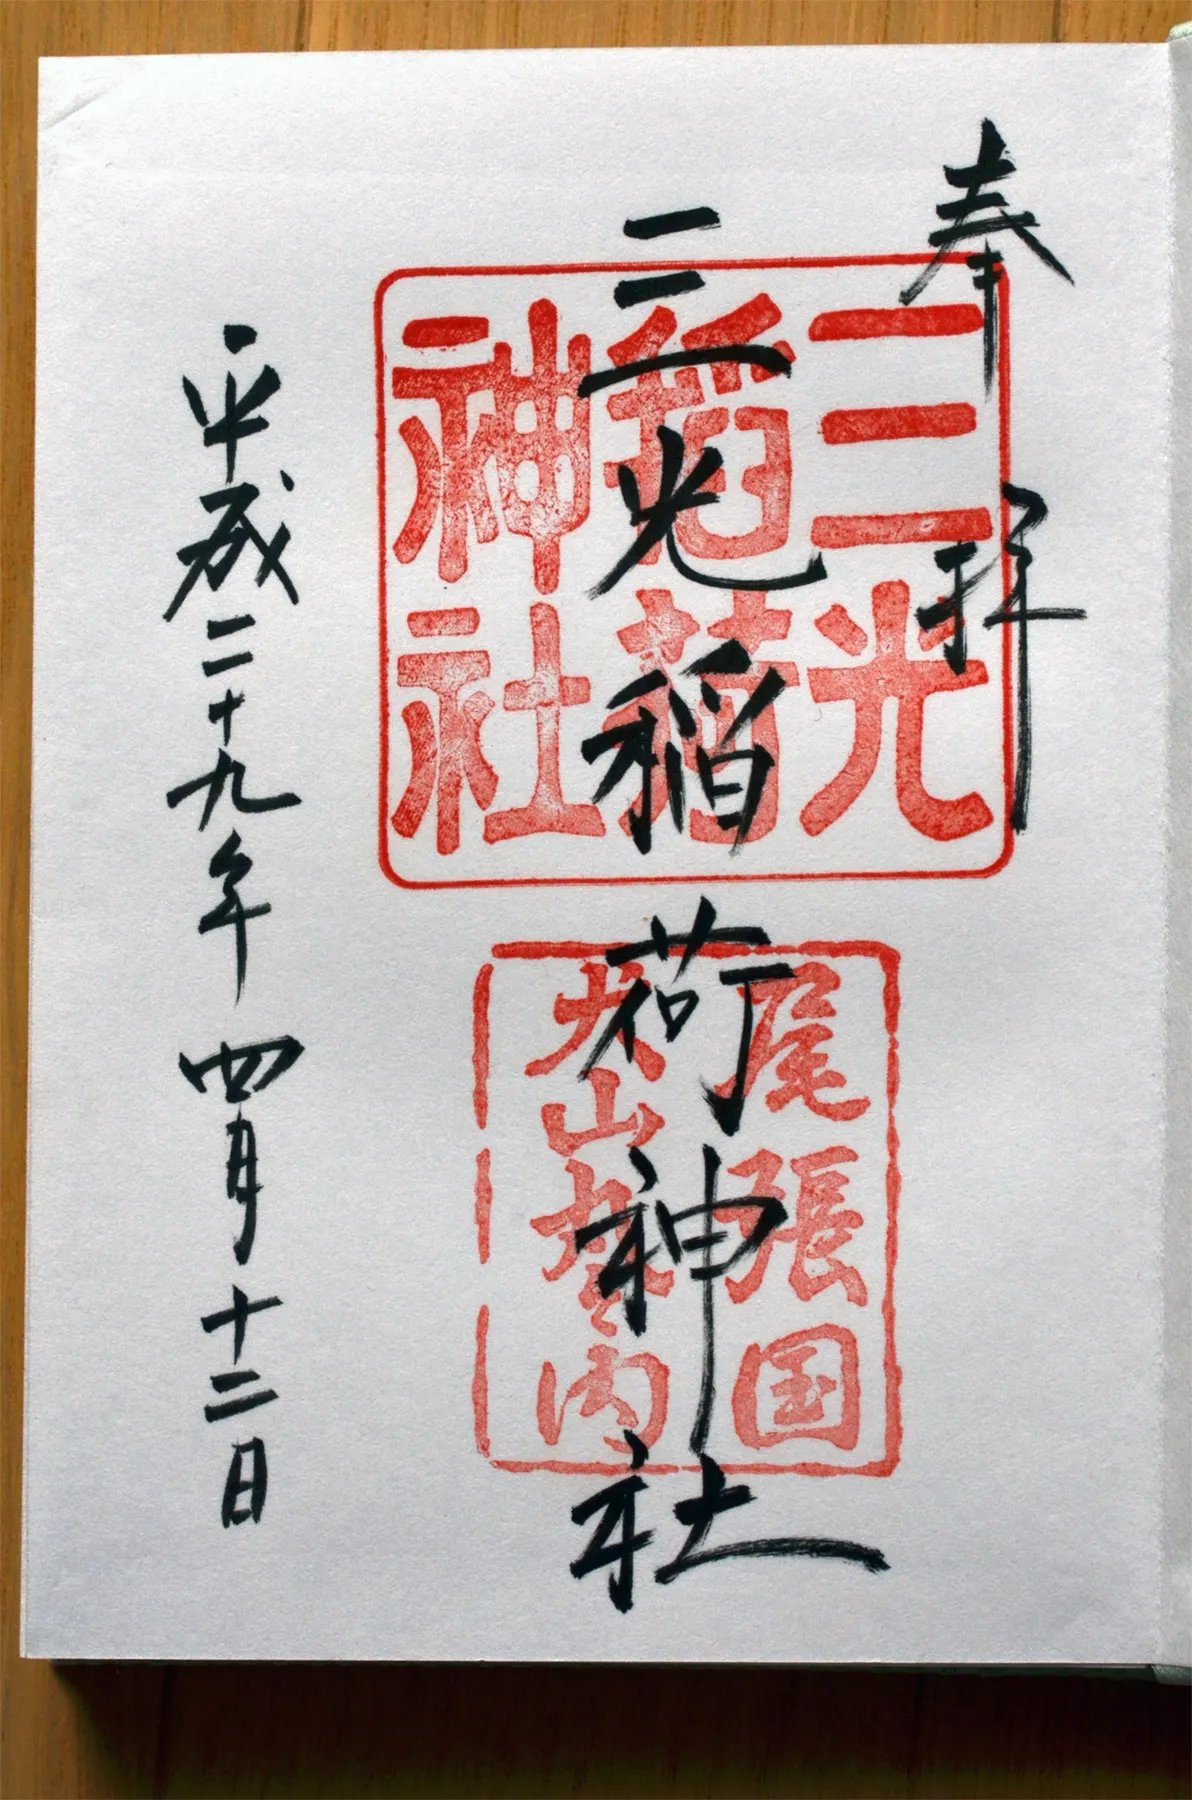 奉拝
三光稲荷神社
平成二十九年四月十二日
三光
稲荷
神社
尾張国
犬山城内